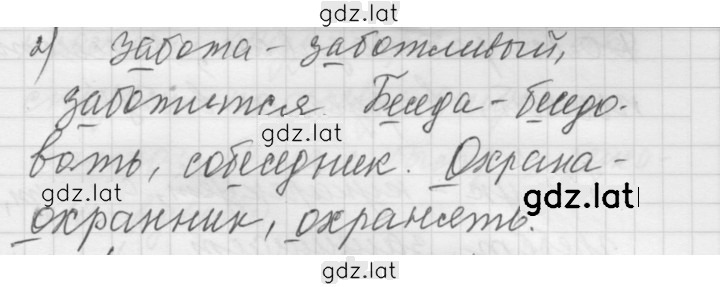 gdz.lat
2) Забота - заботливый,
заботится. Беседа - беседо-
gdz.lat
вать, собеседник. Охрана -
gdz.lat
gdz.lat
охранник, охранять.
gdz.lat